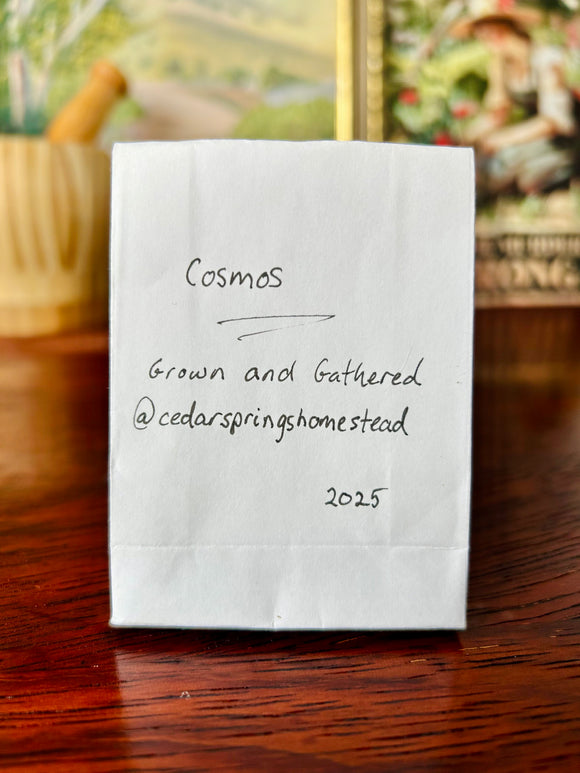 Cosmos
Grown and Gathered
@cedarspringshomestead
2025